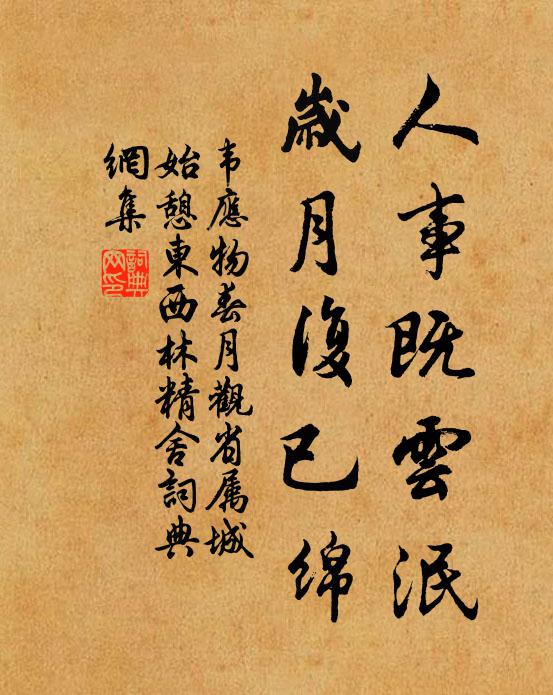 人事既雲泯
歲月復已綿
韦應物春月觀省属城
始憩東西林精舍詞典
網集
詞典
网印